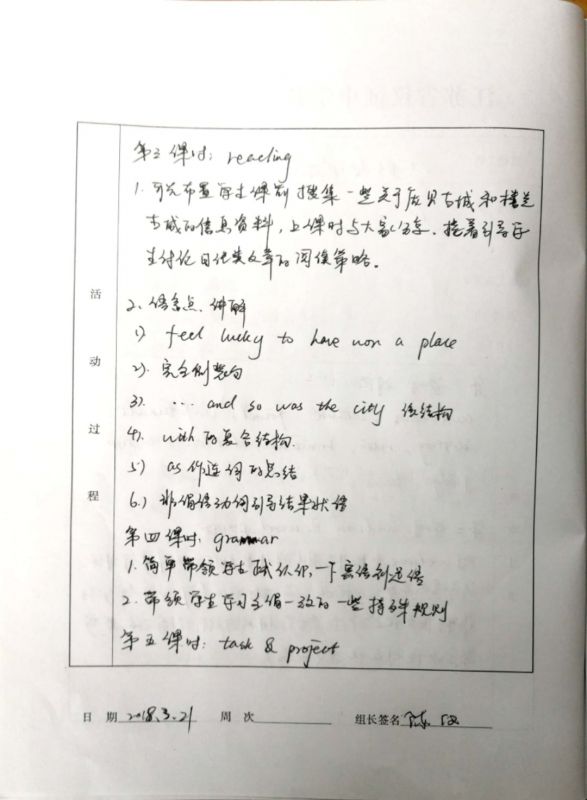 第三课时: reading
1. 可先布置学生课前搜集一些关于庞贝古城和楼兰
古城的信息资料,上课时与大家分享. 接着引导学
生讨论日记类文章的阅读策略.
2. 语言点讲解
1) feel lucky to have won a place
2). 完全倒装句
3). ... and so was the city 倒装结构
4). with 的复合结构
5) as 作连词的总结
6.) 非谓语动词引导结果状语
第四课时: grammar
1. 简单带领学生认识一下宾语补足语
2. 带领学生学习主谓一致的一些特殊规则
第五课时: task & project
活动过程
日 期 2018.3.21 周 次 组长签名 陈